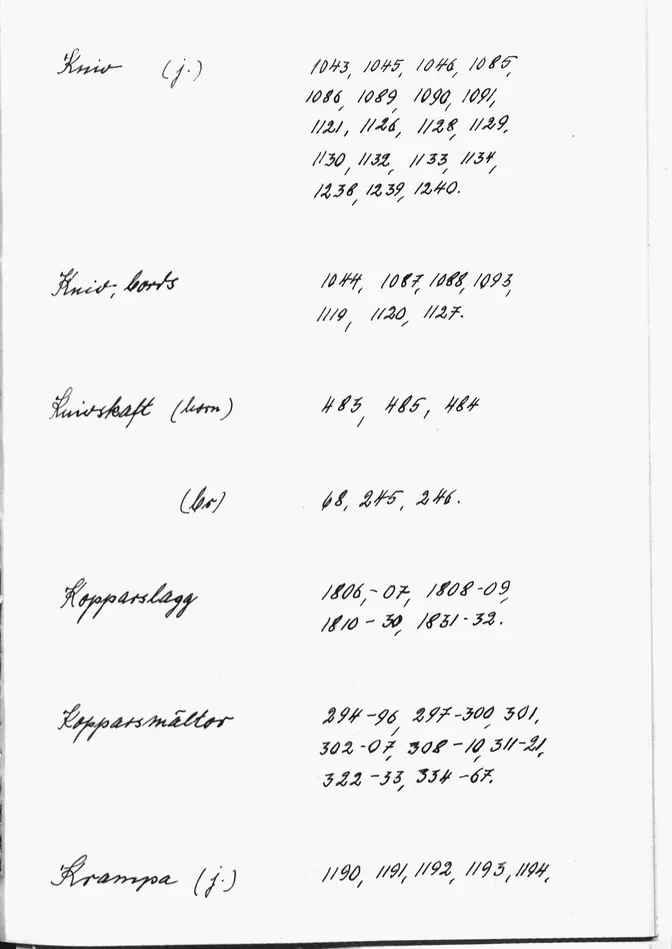 Kniv (j.) 1043, 1045, 1046, 1085,
1086, 1089, 1090, 1091,
1121, 1126, 1128, 1129,
1130, 1132, 1133, 1134,
1238, 1239, 1240.
Kniv, bords 1044, 1087, 1088, 1093,
1119, 1120, 1127.
Knivskaft (horn) 483, 485, 484
(br) 68, 245, 246.
Kopparslagg 1806,-07, 1808-09,
1810-30, 1831-32.
Kopparsmältor 294-96, 297-300, 301,
302-07, 308-10, 311-21,
322-33, 334-67.
Krampa (j.) 1190, 1191, 1192, 1193, 1194,